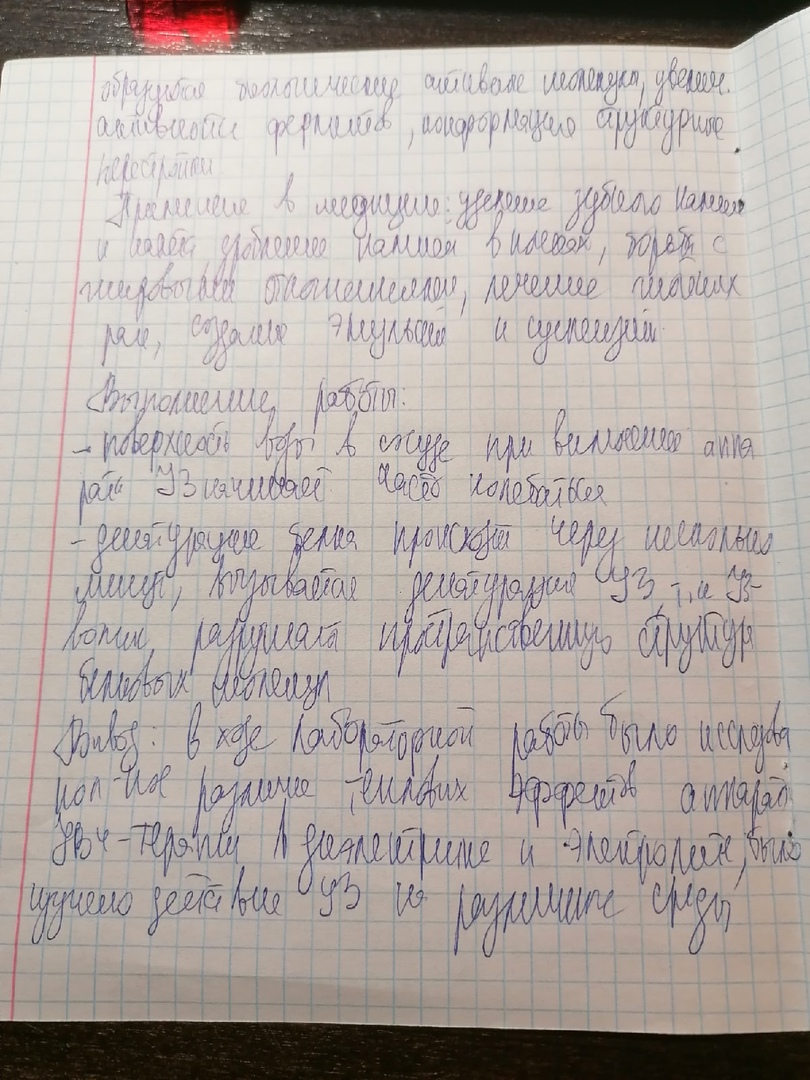 образуются биологические активные молекулы, увелич.
активности ферментов, конформацию структурные
перестройки
Применение в медицине: удаление зубного камня
и налёта дробление камней в почках, борьба с
жировыми отложениями, лечение гнойных
ран, создание эмульсий и суспензий
Выполнение работы:
- поверхность воды в сосуде при включение аппа
рата УЗ начинает часто колебаться
- денатурация белка происходит через несколько
минут, вызывается денатурация УЗ, т.к УЗ-
волны разрушала пространственную структур
белковых молекул
Вывод: в ходе лабораторной работы было исследова
различие тепловых эффектов аппарат
УВЧ-терапии в диэлектрике и электролите, было
изучено действие УЗ на различные среды